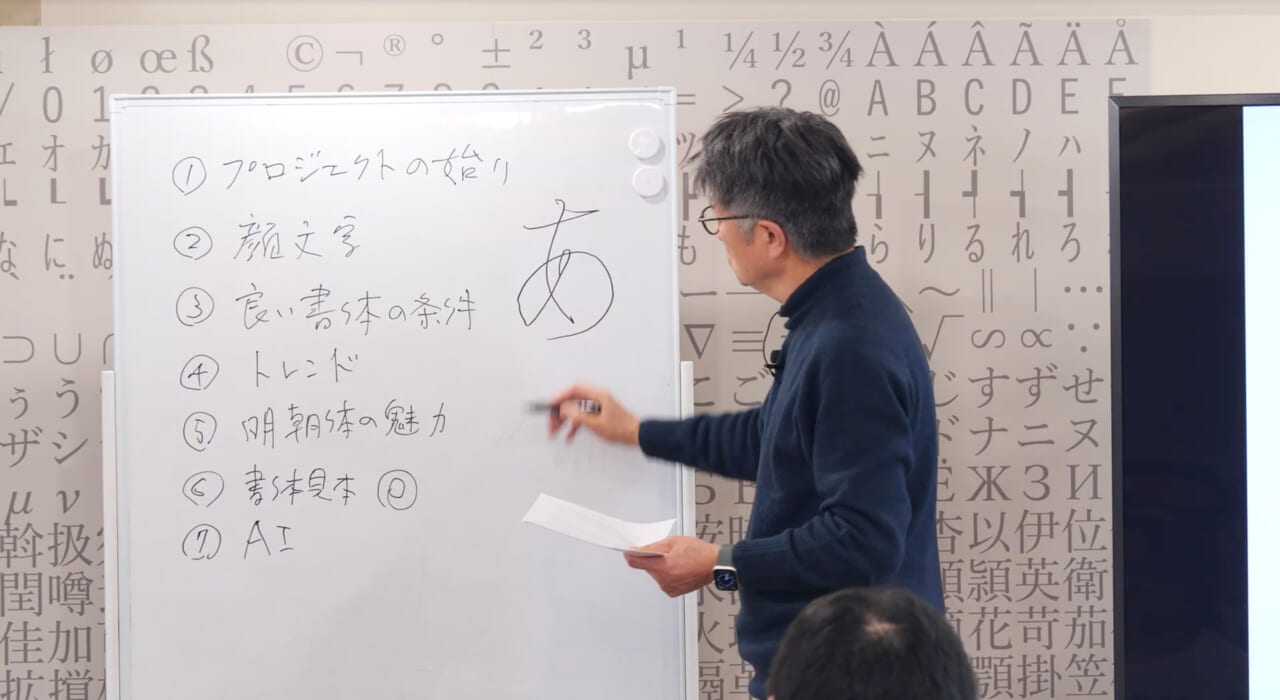 ł ø œ ß © ¬ ® ° ± ² ³ µ ¹ ¼ ½ ¾ À Á Â Ã Ä Å
/ 0 1 = > ? @ A B C D E F
エ オ カ ツ ニ ヌ ネ ノ ハ
① プロジェクトの始り
な に ぬ も ら り る れ ろ
② 顔文字
あ
③ 良い書体の条件
④ トレンド
⑤ 明朝体の魅力
⑥ 書体見本 ⓟ
⑦ AI
〜 ‖ | …
⊃ ∪ ∩ ▽ ≡ √ ∽ ∝
ぅ う こ ご じ す ず せ
ザ シ ド ナ ニ ヌ
μ ν Ё Ж З И
幹 扱 按 杏 以 伊 位
閏 噂 頴 英 衛
佳 加 火 花 苛 茄
拡 撹 隔 顎 掛 笠